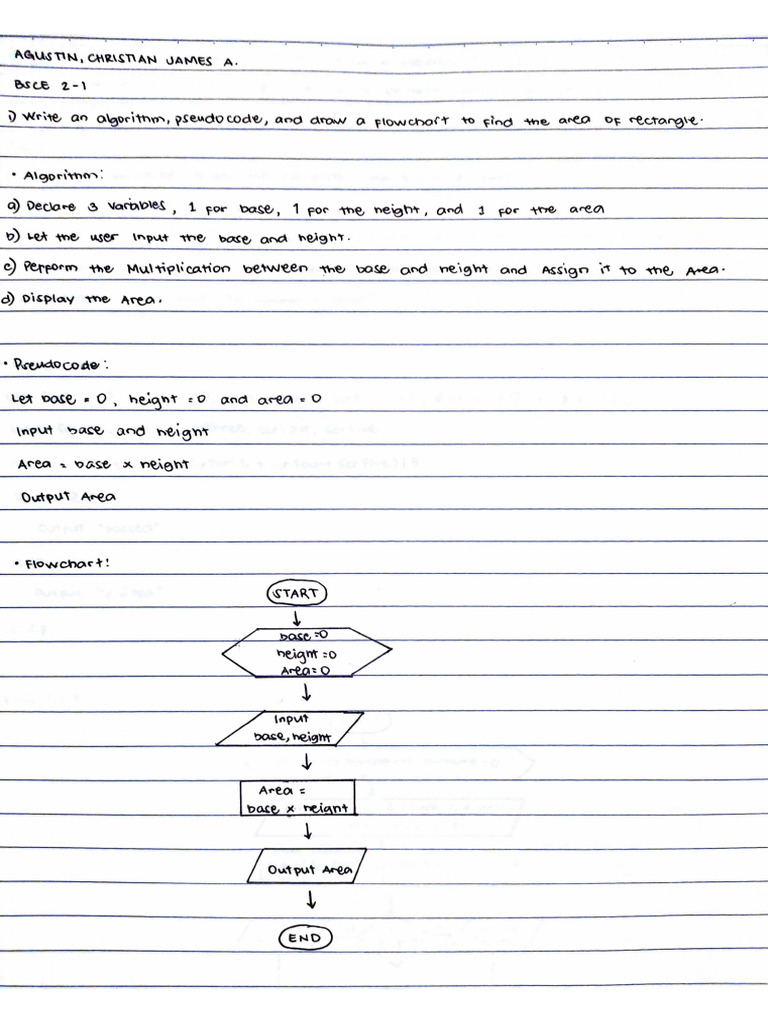 AGUSTIN, CHRISTIAN JAMES A.
BSCE 2-1
1) Write an algorithm, pseudocode, and draw a flowchart to find the area of rectangle.
• Algorithm:
a) Declare 3 variables, 1 for base, 1 for the height, and 1 for the area
b) Let the user input the base and height.
c) Perform the Multiplication between the base and height and Assign it to the Area.
d) Display the Area.
• Pseudocode:
Let base = 0, height = 0 and area = 0
Input base and height
Area = base x height
Output Area
• Flowchart:
START
base=0
height=0
Area=0
Input
base, height
Area =
base x height
Output Area
END